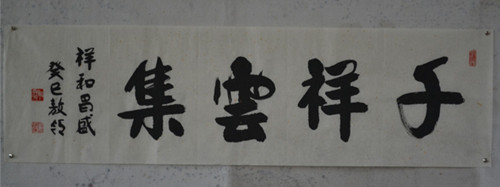 千祥雲集
祥和昌盛
癸巳